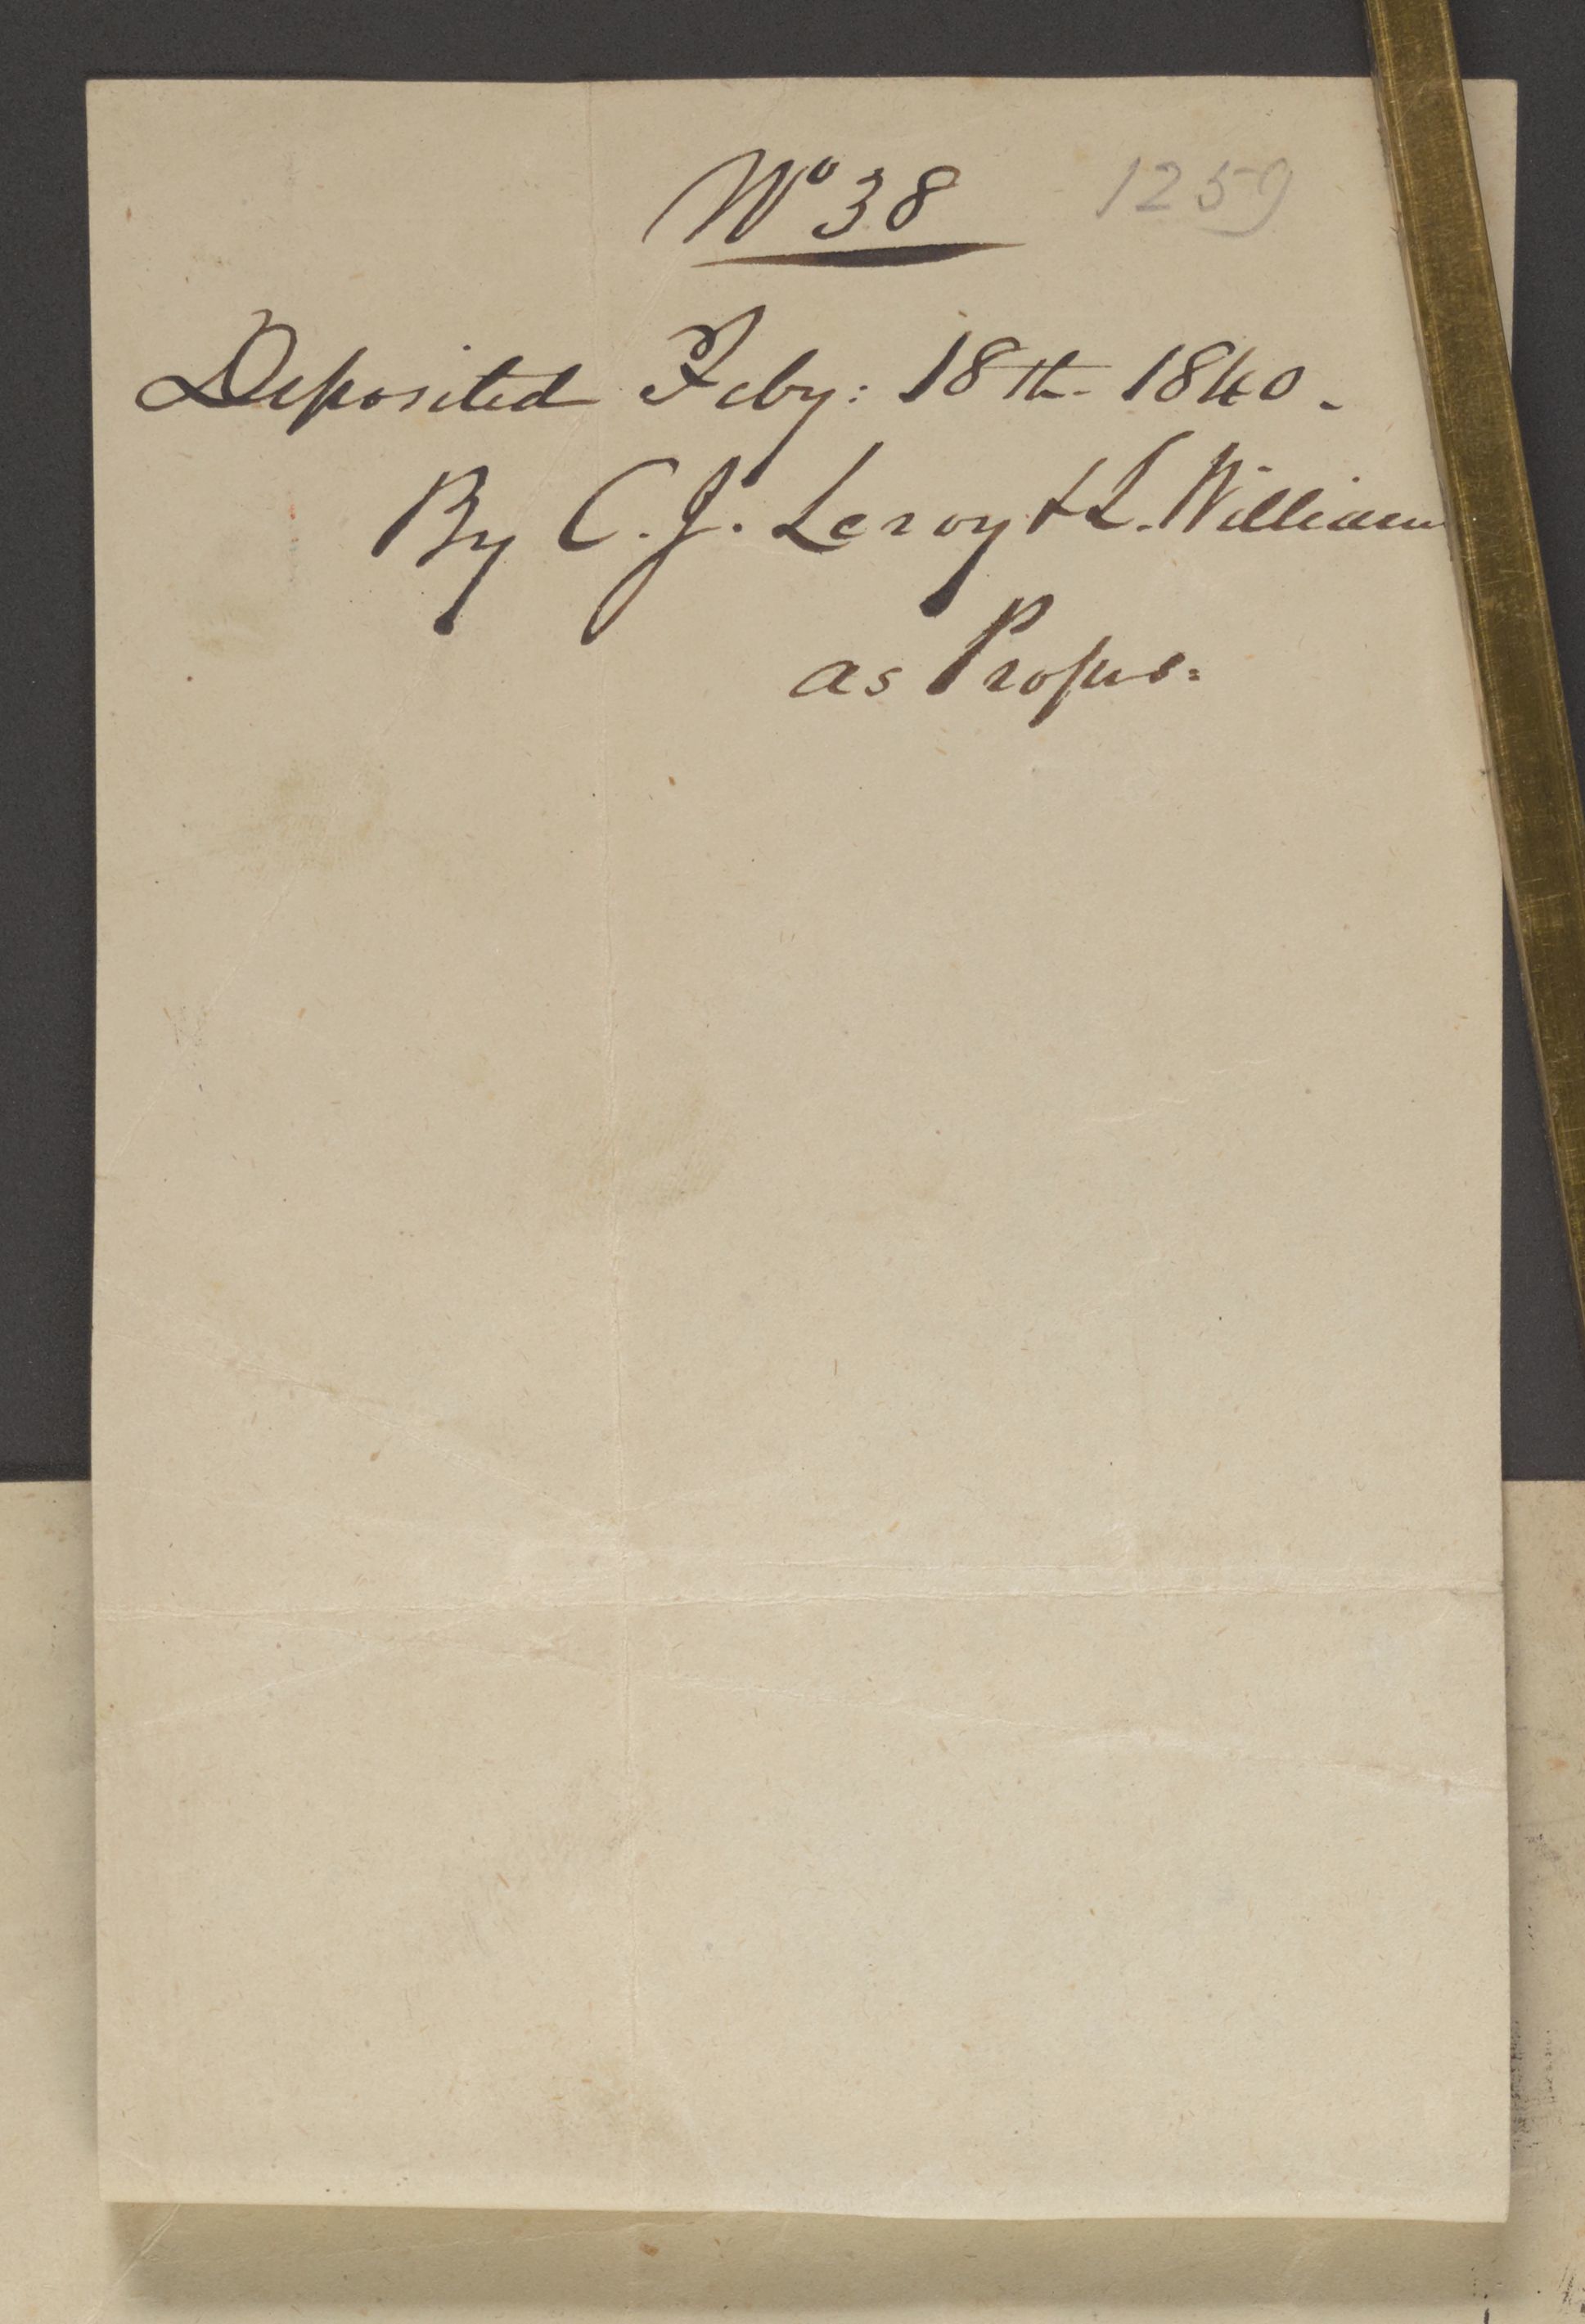 No 38 1259
Deposited Feby: 18th 1840.
By C. J. Leroy & L. William
as Proprs.